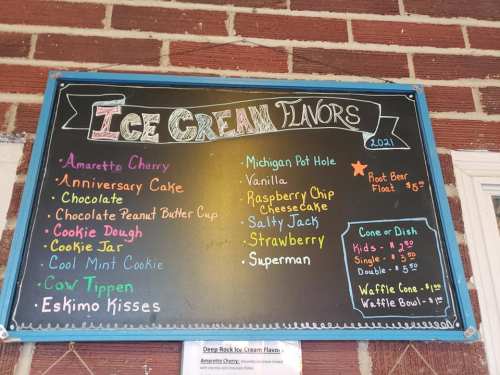 Ice Cream Flavors
2021
• Amaretto Cherry
• Anniversary Cake
• Chocolate
• Chocolate Peanut Butter Cup
• Cookie Dough
• Cookie Jar
• Cool Mint Cookie
• Cow Tippen
• Eskimo Kisses
• Michigan Pot Hole
• Vanilla
• Raspberry Chip
Cheesecake
• Salty Jack
• Strawberry
• Superman
Root Beer
Float $5.00
Cone or Dish
Kids - $2.50
Single - $3.50
Double - $5.50
Waffle Cone - $1.00
Waffle Bowl - $1.00
Deep Rock Ice Cream Flavor
Amaretto Cherry: